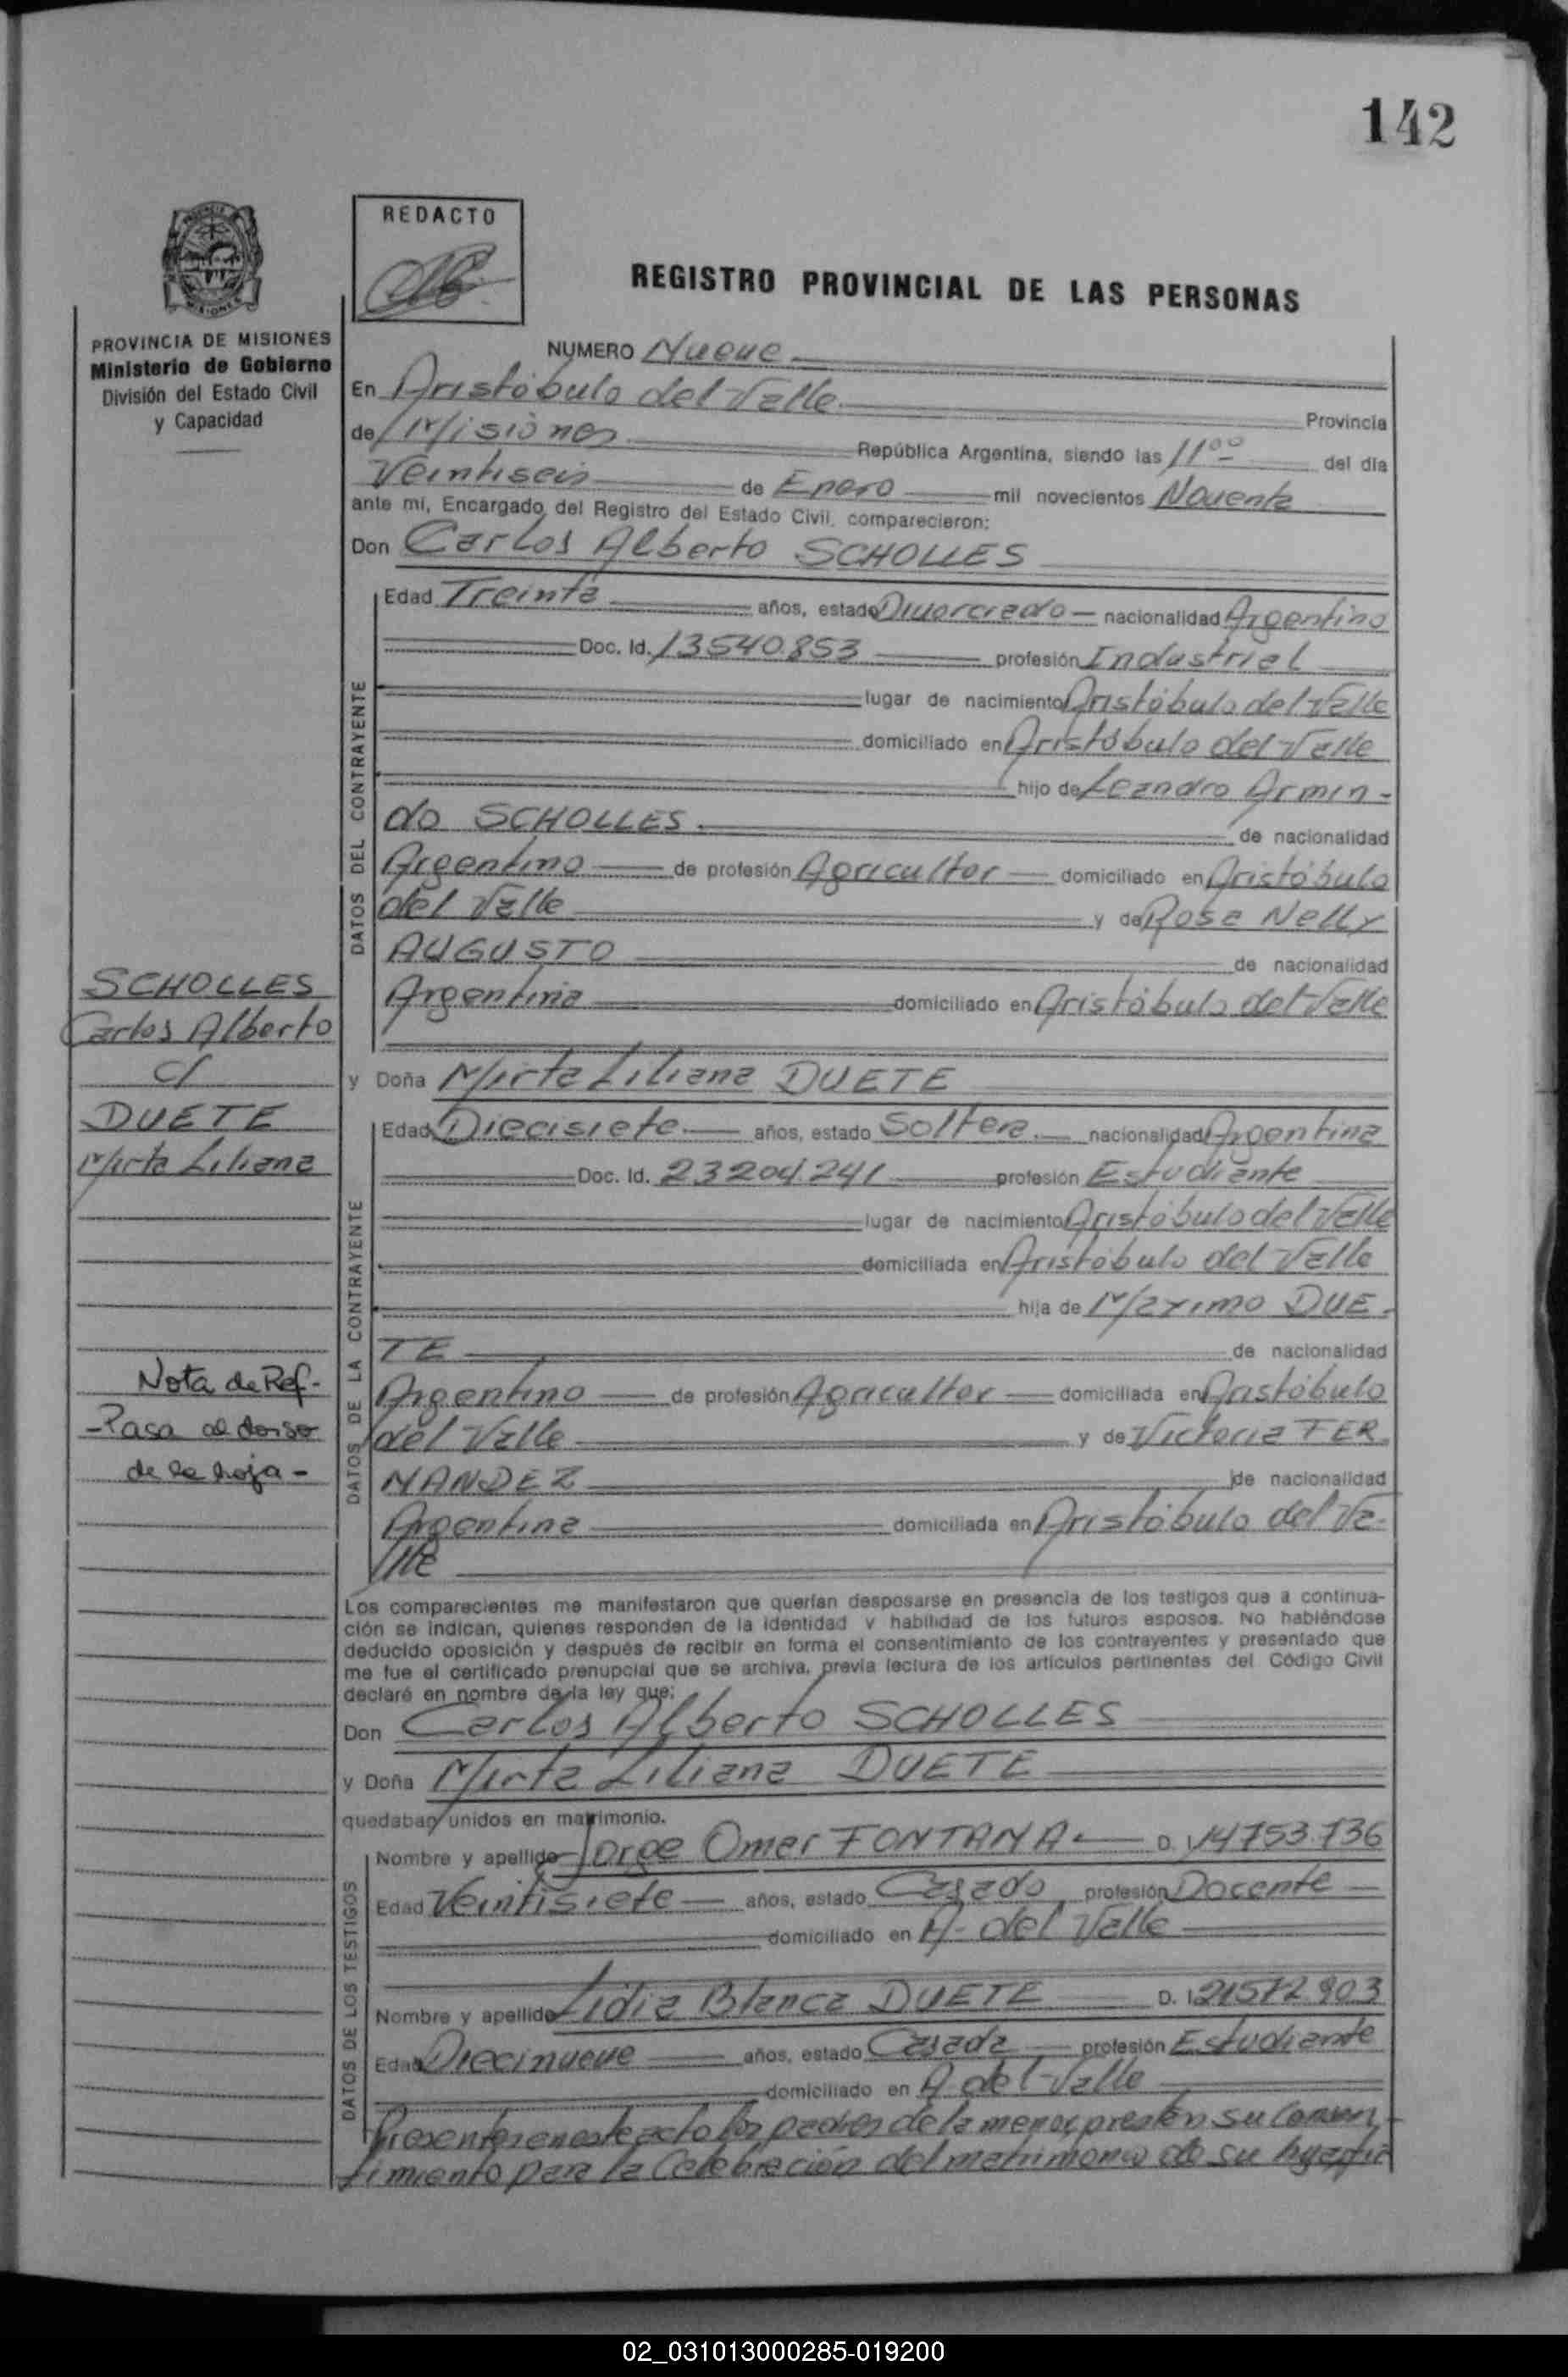 142
REDACTO
REGISTRO PROVINCIAL DE LAS PERSONAS
PROVINCIA DE MISIONES
Ministerio de Gobierno
División del Estado Civil
y Capacidad
NUMERO Nueve
En Aristóbulo del Valle Provincia
de Misiones República Argentina, siendo las 11ºº del día
Veintiseis de Enero mil novecientos Noventa
ante mí, Encargado del Registro del Estado Civil, comparecieron:
Don Carlos Alberto SCHOLLES
Edad Treinta años, estado Divorciado nacionalidad Argentino
Doc. Id. 13540.853 profesión Industrial
lugar de nacimiento Aristóbulo del Valle
domiciliado en Aristóbulo del Valle
hijo de Leandro Armin-
do SCHOLLES. de nacionalidad
Argentino de profesión Agricultor domiciliado en Aristóbulo
del Valle y de Rosa Nelly
AUGUSTO de nacionalidad
Argentina domiciliado en Aristóbulo del Valle
DATOS DEL CONTRAYENTE
SCHOLLES
Carlos Alberto
c/
DUETE
Mirta Liliana
y Doña Mirta Liliana DUETE
Edad Diecisiete años, estado Soltera nacionalidad Argentina
Doc. Id. 23204.241 profesión Estudiante
lugar de nacimiento Aristóbulo del Valle
domiciliada en Aristóbulo del Valle
hija de Máximo DUE-
TE de nacionalidad
Argentino de profesión Agricultor domiciliada en Aristóbulo
del Valle y de Victoria FER
NANDEZ de nacionalidad
Argentina domiciliada en Aristóbulo del Va-
lle
DATOS DE LA CONTRAYENTE
Nota de Ref-
-Pasa al dorso
de la hoja-
Los comparecientes me manifestaron que querían desposarse en presencia de los testigos que a continua-
ción se indican, quienes responden de la identidad y habilidad de los futuros esposos. No habiéndose
deducido oposición y después de recibir en forma el consentimiento de los contrayentes y presentado que
me fue el certificado prenupcial que se archiva, previa lectura de los artículos pertinentes del Código Civil
declaré en nombre de la ley que:
Don Carlos Alberto SCHOLLES
y Doña Mirta Liliana DUETE
quedaban unidos en matrimonio.
Nombre y apellido Jorge Omar FONTANA D. I. 14753.736
Edad Veintisiete años, estado Casado profesión Docente
domiciliado en A- del Valle
Nombre y apellido Lidia Blanca DUETE D. I. 21572.903
Edad Diecinueve años, estado Casada profesión Estudiante
domiciliado en A del Valle
DATOS DE LOS TESTIGOS
Presentes en este acto los padres de la menor prestan su Consen-
timiento para la Celebración del matrimonio de su hija
02_031013000285-019200